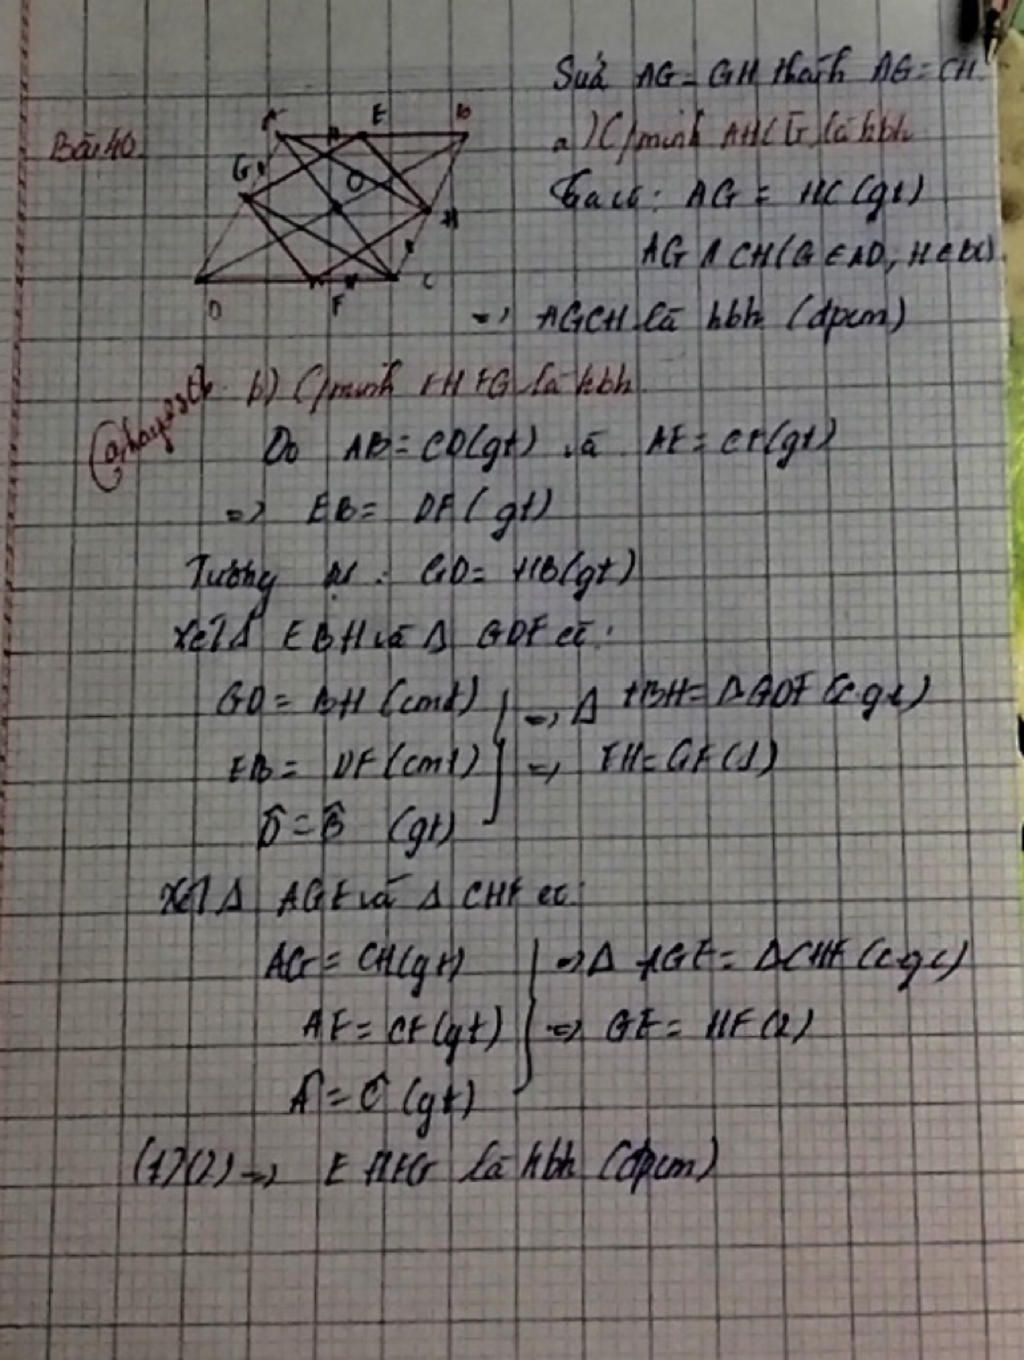 Sửa AG = GH thành AG = CH
Bài 40
A E B
G O H
D F C
a) C/minh AHCG là hbh
Ta có: AG = HC (gt)
AG // CH (G ∈ AD, H ∈ BC)
=> AGCH là hbh (đpcm)
b) C/minh EHFG là hbh
Do AB = CD (gt) và AE = CF (gt)
=> EB = DF (gt)
Tương tự: GD = HB (gt)
Xét Δ EBH và Δ GDF có:
GD = BH (cmt) => Δ EBH = Δ GDF (c.g.c)
EB = DF (cmt) => EH = GF (1)
D̂ = B̂ (gt)
Xét Δ AGE và Δ CHF có:
AG = CH (gt) => Δ AGE = Δ CHF (c.g.c)
AE = CF (gt) => GE = HF (2)
Â = Ĉ (gt)
(1)(2) => EHFG là hbh (đpcm)